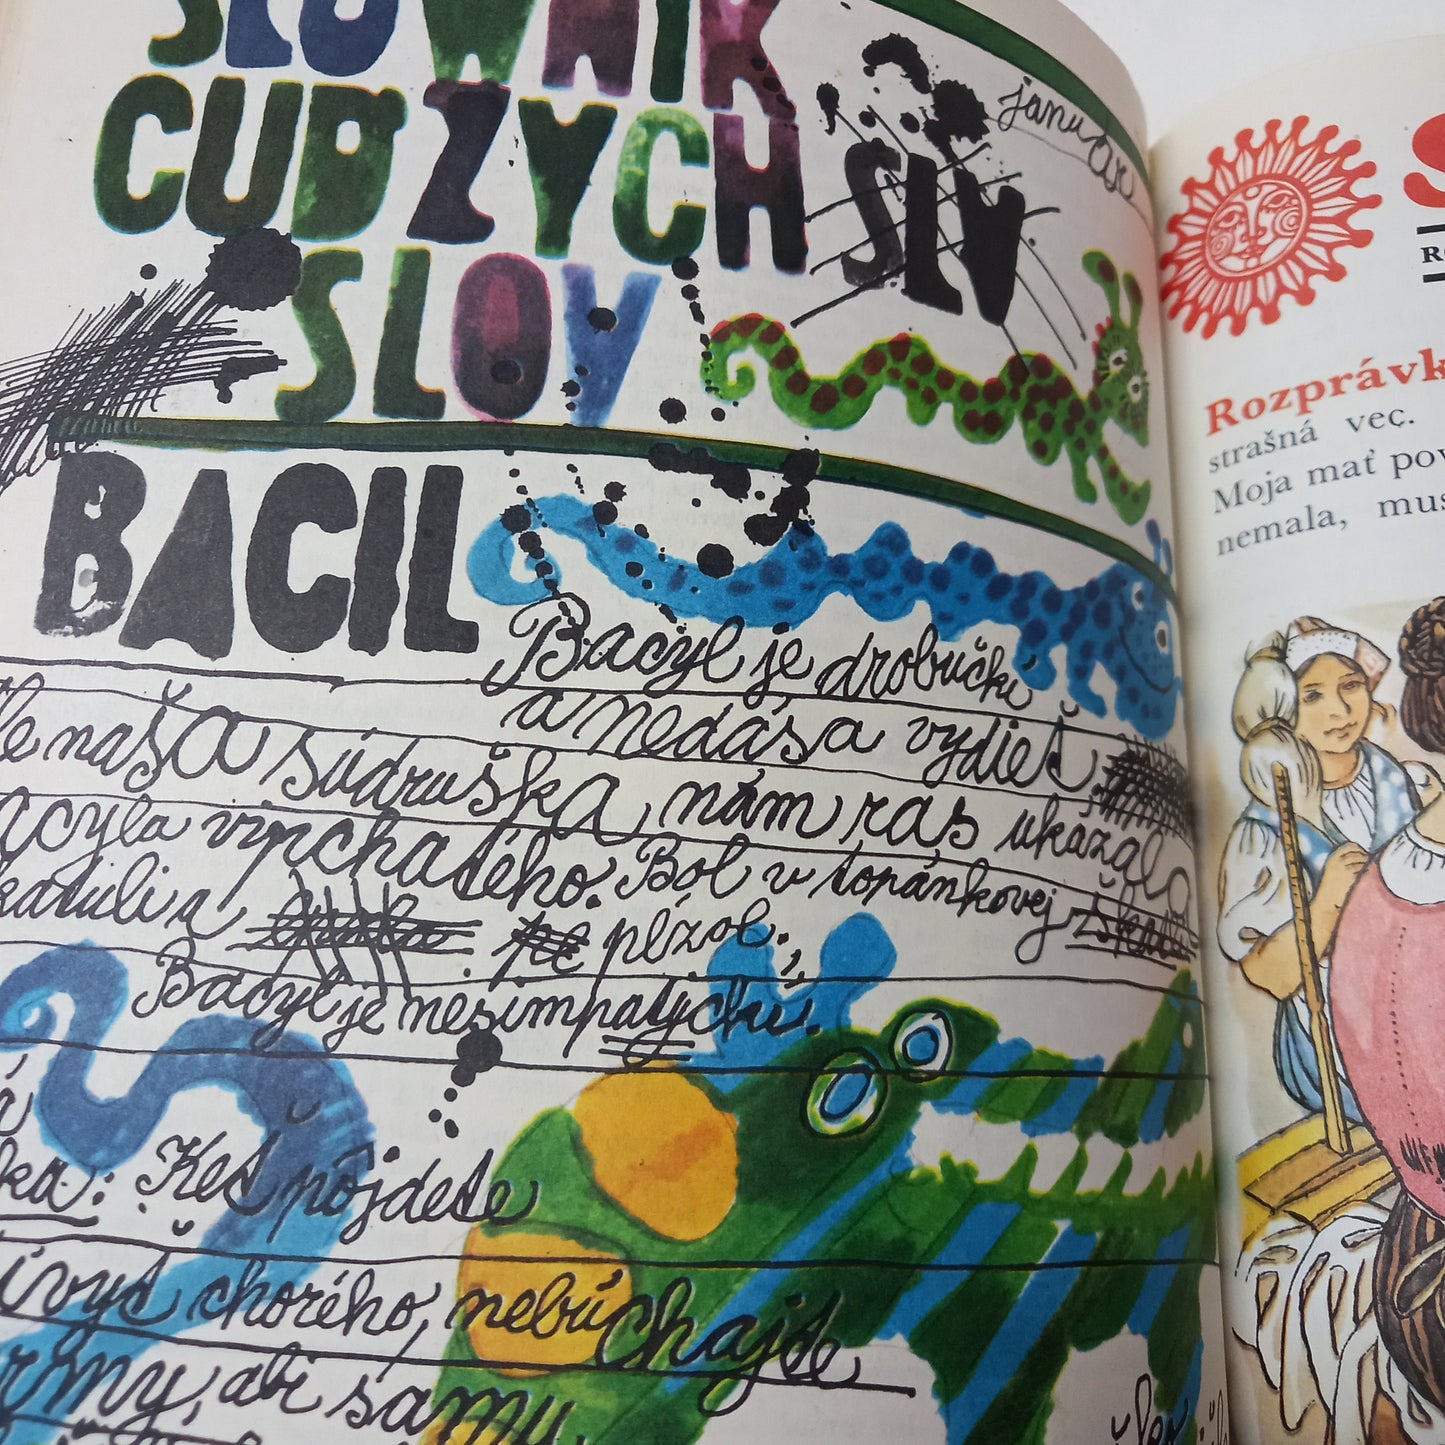 SLOWNIK
CUDZYCH
SLOV
SLV
januar
BACIL
Bacyl je drobučki
a nedá sa vydieť
le naša súdruška nám ras ukázala
acyla vipchatého. Bol v topánkovej
katuli a plzol.
Bacyl je nesimpatycki.
ka: Keť pôjdete
ívyť chorého, nebúchajte
army, abi samy
Rozprávk
strašná vec.
Moja mať pov
nemala, mus